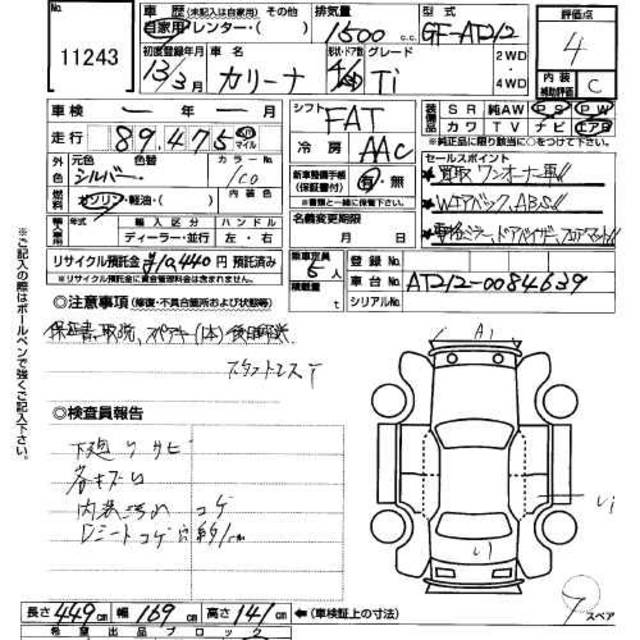 No.
11243
車歴 (未記入は自家用) その他
自家用・レンター・( )
排気量
1500 c.c.
型式
GF-AT212
評価点
4
内装補助評価
C
初度登録年月
13/3月
車名
カリーナ
形状・ドア数
グレード
Ti
2WD
4WD
車検 ー 年 ー 月
走行 89,475
マイル
シフト
FAT
冷房
AAC
装備品
SR 純AW PS PW
カワ TV ナビ エアB
※純正品に限り該当に○をつけて下さい。
外色
元色
シルバー
色替
カラーNo.
1C0
燃料
ガソリン・軽油・( )
内装色
輸入車用
年式
輸入区分
ハンドル
ディーラー・並行
左・右
新車整備手帳
(保証書付)
有・無
※書類と一緒に保管下さい。
名義変更期限
月 日
セールスポイント
★買取 ワンオーナー車!!
★Wエアバック、ABS!!
ドアバイザー、フロアマット!!
リサイクル預託金 ¥10,440円 預託済み
※リサイクル預託金に資金管理料金は含まれません。
乗車定員
5人
積載量
t
登録No.
車台No.
AT212-0084639
シリアルNo.
◎注意事項 (修復・不具合箇所および状態等)
保証書、取説、スペアキー(1本)後日郵送
スタッドレスT
◎検査員報告
下廻りサビ
各キズ
内装汚れ コゲ
Dシートコゲ穴 約1cm
A1
スペア
長さ 449cm 幅 169cm 高さ 141cm ←(車検証上の寸法)
希望出品ブロック
※ご記入の際はボールペンで強くご記入下さい。